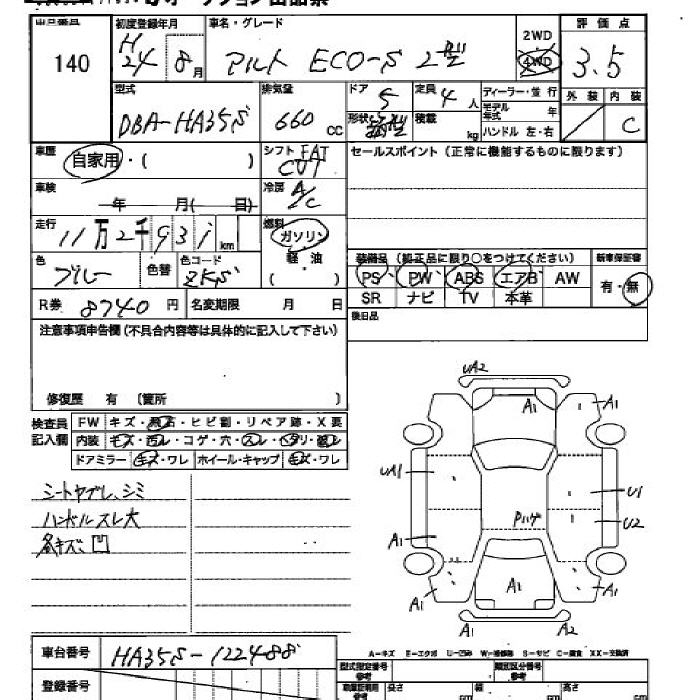 出品番号
140
初度登録年月
H24 8月
車名・グレード
アルト ECO-S 2型
2WD
4WD
評価点
3.5
外装 内装
C
型式
DBA-HA35S
排気量
660 cc
ドア 5
形状 箱型
定員 4人
積載 kg
ディーラー・並行
モデル年式 年
ハンドル 左・右
車歴
自家用・( )
シフト FAT
CVT
セールスポイント (正常に機能するものに限ります)
車検
年 月( 日)
冷房 A/C
走行
11万2千931km
燃料
ガソリン
軽油
( )
色
ブルー
色替
色コード
ZKS
装備品 (純正品に限り○をつけてください)
新車保証書
PS PW ABS エアB AW
有・無
SR ナビ TV 本革
R券 8740円
名変期限 月 日
後日品
注意事項申告欄 (不具合内容等は具体的に記入して下さい)
修復歴 有 〔箇所 〕
検査員記入欄
FW キズ・飛石・ヒビ割・リペア跡・X要
内装 キズ・汚レ・コゲ・穴・スレ・
ドアミラー キズ・ワレ ホイール・キャップ キズ・ワレ
シートヤブレ、シミ
ハンドルスレ大
各キズ、凹
UA2
A1
A1
UA1
U1
U2
Pハゲ
A1
A1
A1
A1
A1
A2
A-キズ E-エクボ U-凹み W-補修跡 S-サビ C-腐食 XX-交換済
車台番号
HA35S-122488
登録番号
型式指定番号 参考
類別区分番号 参考
長さ cm
幅 cm
高さ cm